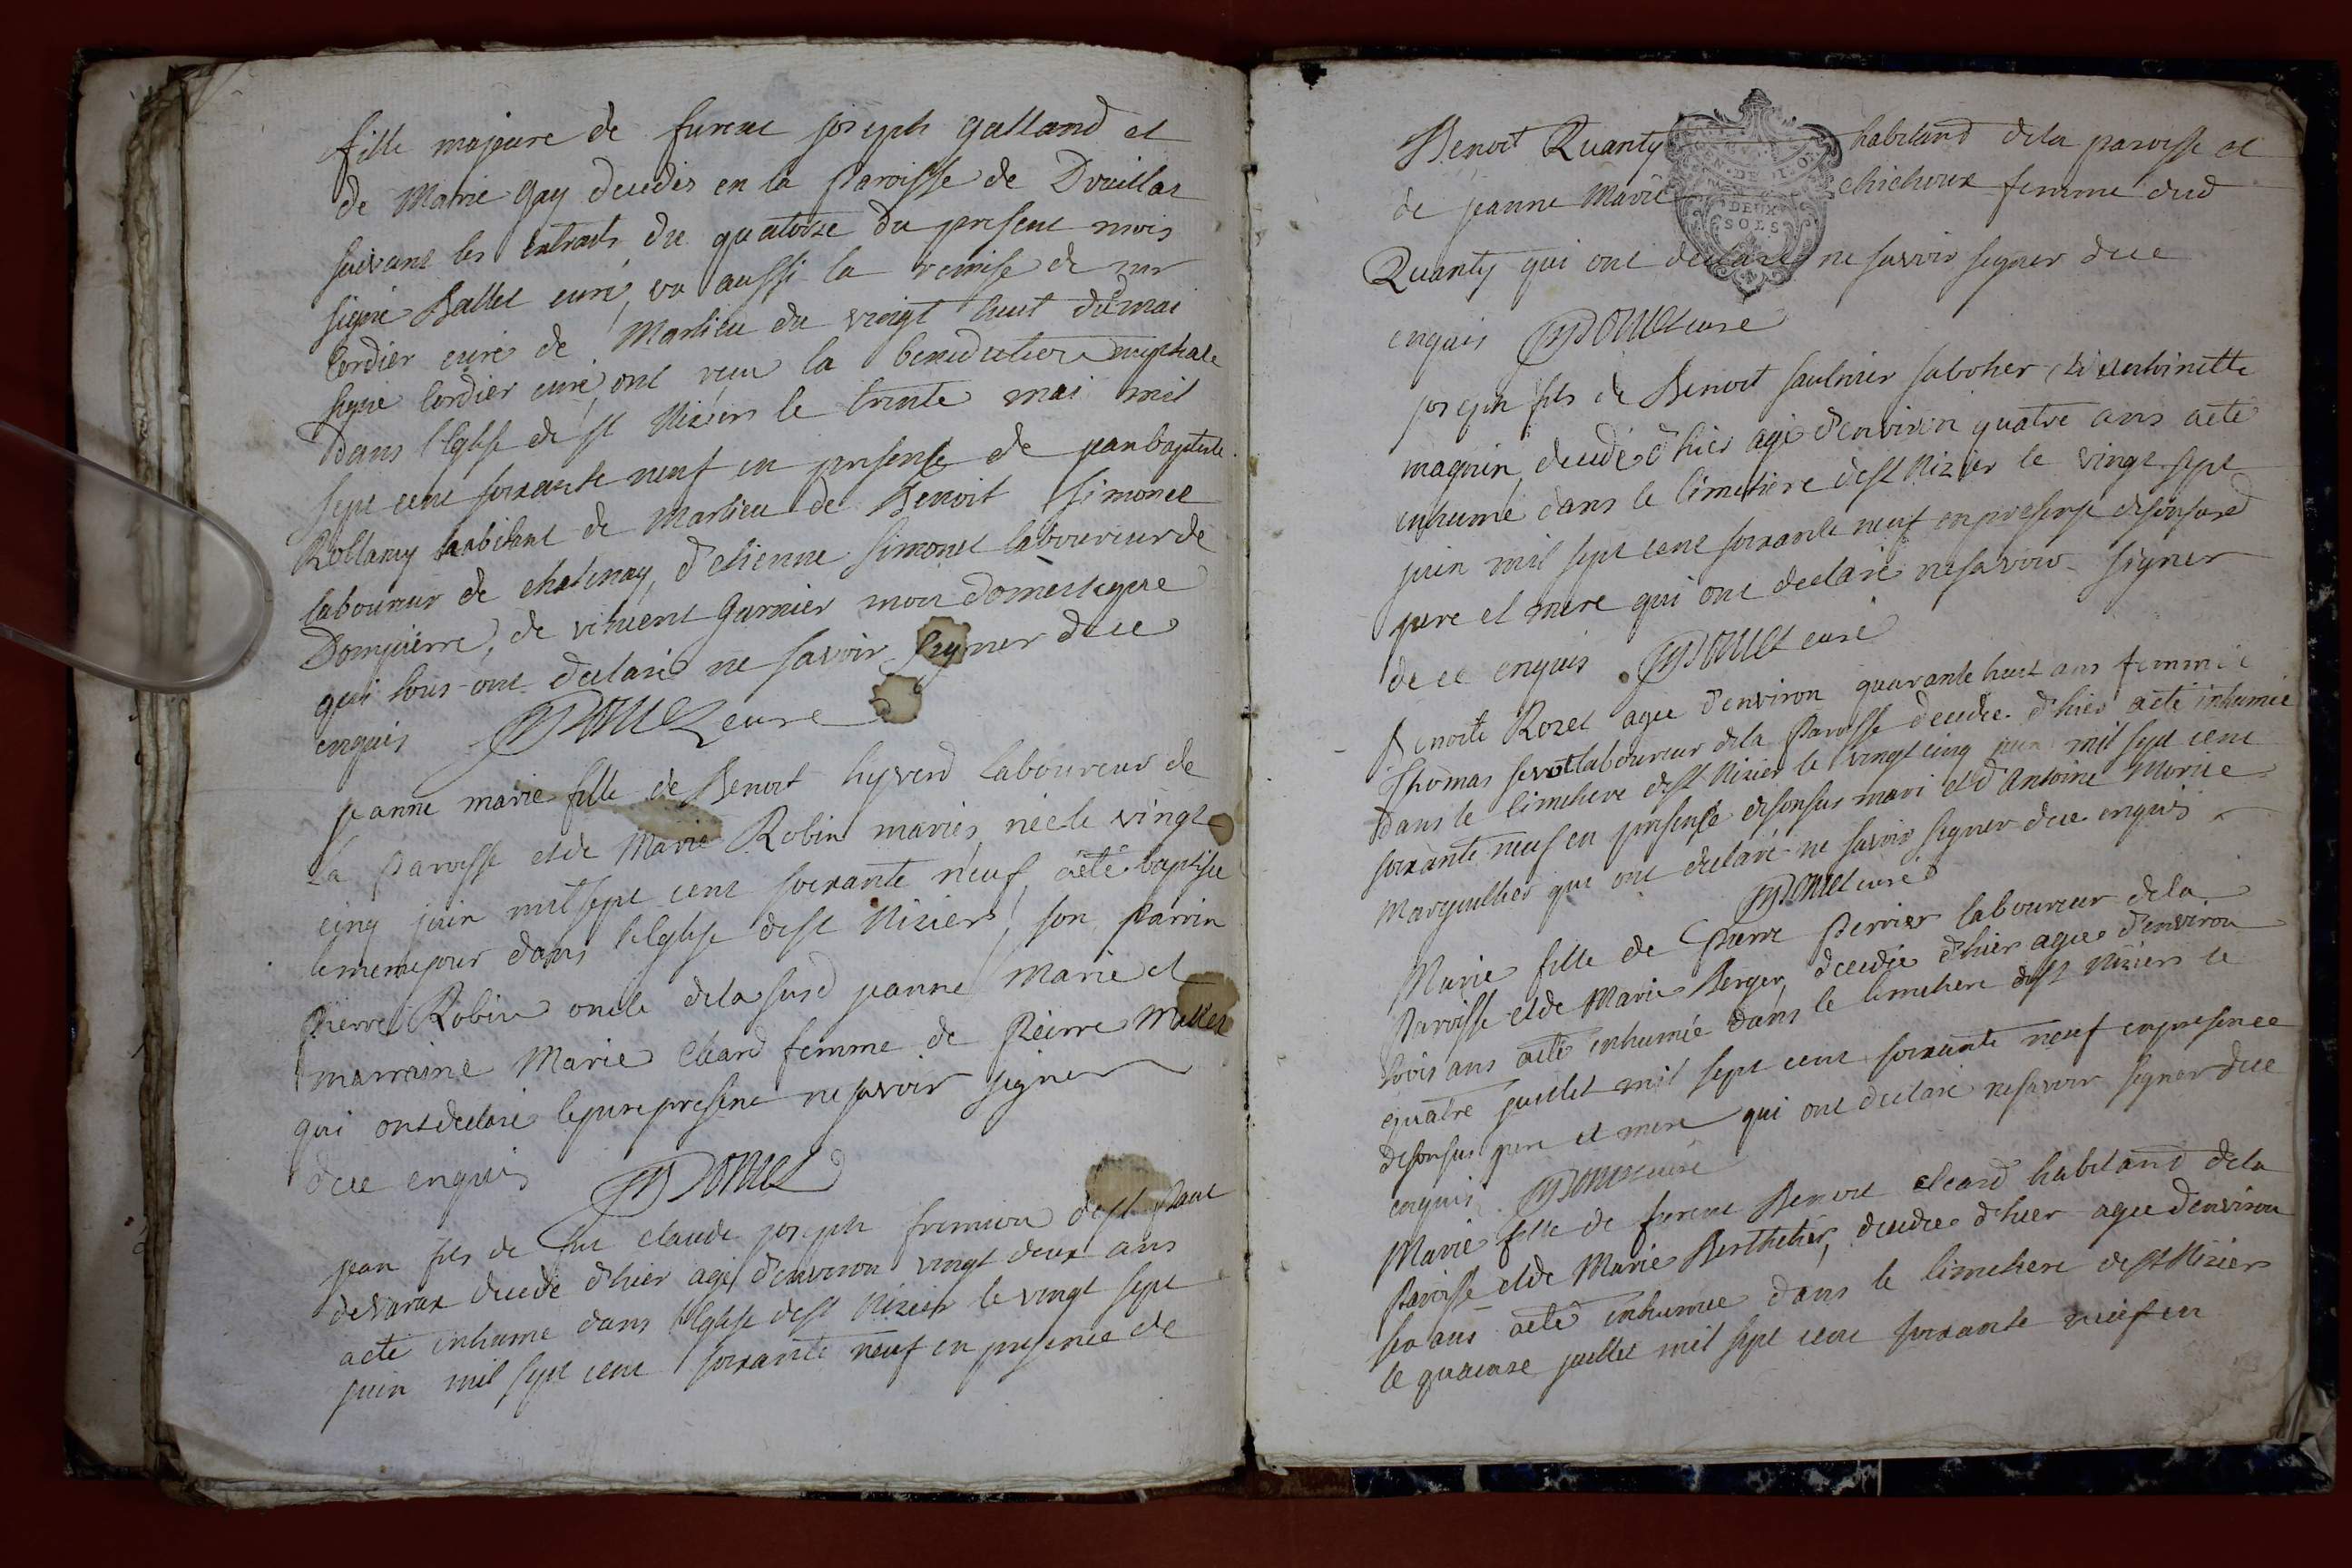 fille majeure de furent joseph galland et
de Marie Gay decedés en la paroisse de Druillat
suivant les extraits du quatorze du present mois
signé Ballet curé, vu aussi la remise de mr
Cordier curé de Marlieu du vingt huit de mai
signé Cordier curé, ont reçu la benediction nuptiale
dans l'Eglise de st Nizier le trente mai mil
sept cent soixante neuf en presense de jean baptiste
habitant de Marlieu de Benoit Simonet
laboureur de chatenay, d'etienne Simonet laboureur de
Dompierre, de vincent Garnier mon domestique
qui tous ont declaré ne savoir signer de ce
enquis curé
jeanne marie fille de Benoit hyverd laboureur de
la paroisse et de Marie Robin mariés, née le vingt
cinq juin mil sept cent soixante neuf, a eté baptisée
le meme jour dans l'Eglise de st Nizier, son parrin
Pierre Robin oncle de la susd jeanne Marie et
marraine Marie Cleard femme de Pierre
qui ont declaré le pere present ne savoir signer
de ce enquis
jean fils de fut claude joseph de st Paul
de varax decedé d'hier agé d'environ vingt deux ans
a eté inhumé dans l'Eglise de st Nizier le vingt sept
juin mil sept cent soixante neuf en presence de
Benoit Quanty habitand de la paroisse et
de jeanne Marie femme dud
Quanty qui ont declaré ne savoir signer de ce
enquis curé
DEUX
SOLS
joseph fils de Benoit Saulnier sabotier et d'Antoinette
magnin, decedé d'hier agé d'environ quatre ans a eté
inhumé dans le Cimetiere de st Nizier le vingt sept
juin mil sept cent soixante neuf en presense de son susd
pere et mere qui ont declaré ne savoir signer
de ce enquis curé
Benoite Rozet agee d'environ quarante huit ans femme de
Thomas laboureur de la paroisse decedée d'hier a eté inhumée
dans le Cimetiere de st Nizier le vingt cinq juin mil sept cent
soixante neuf en presense de son sus mari et d'Antoine
Marguillier qui ont declaré ne savoir signer de ce enquis
curé
Marie fille de Pierre Perrier laboureur de la
Paroisse et de Marie Berger, decedée d'hier agee d'environ
trois ans a eté inhumée dans le Cimetiere de st Nizier le
quatre juillet mil sept cent soixante neuf en presence
de son sus pere et mere qui ont declaré ne savoir signer de ce
enquis curé
Marie fille de furent Benoit Cleard habitand de la
paroisse et de Marie Berthelier, decedee d'hier agee d'environ
six ans a eté inhumee dans le Cimetiere de st Nizier
le quatorze juillet mil sept cent soixante neuf en